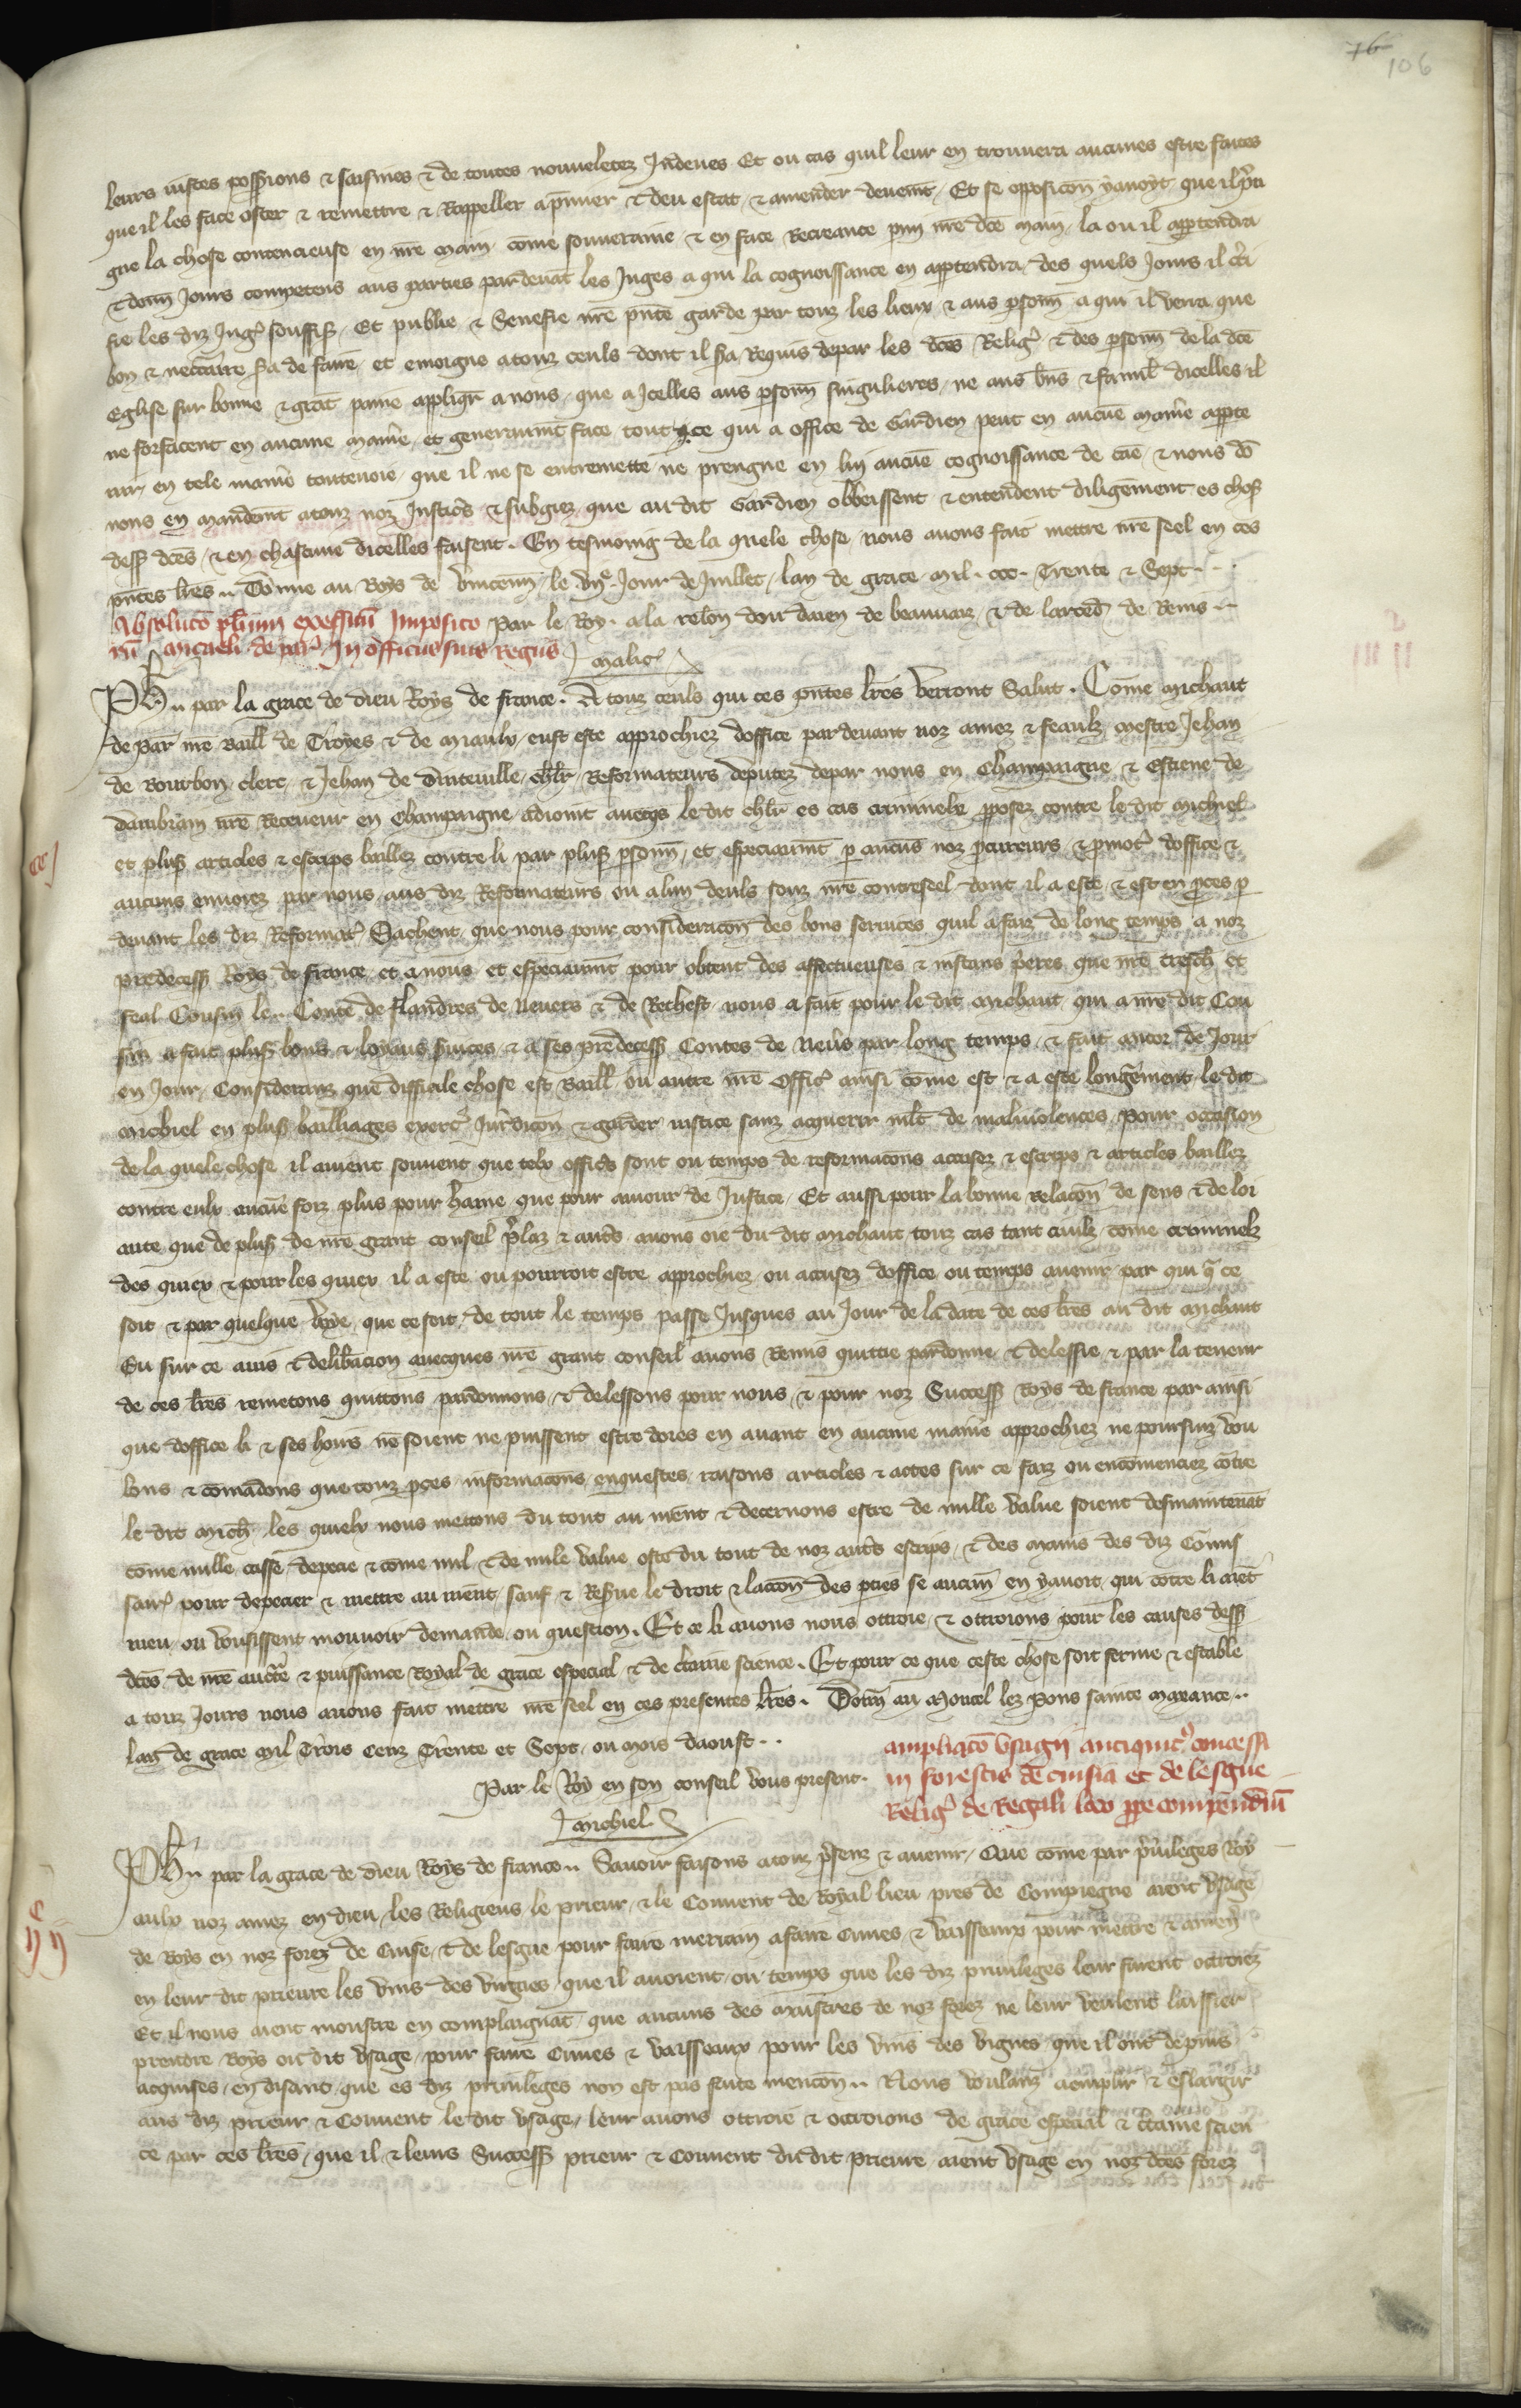 76
106
leurs iustes possessions & saisines & de toutes nouueletez Indeues Et ou cas quil leur en trouuera aucunes estre faites
que il les face oster & remettre & Rappeller a pmier & deu estat & amender deuemt Et se opposicon y auoyt que il pra
gne la chose contencieuse en nre main cōme souueraine & en face Recreance p mi nre dce main la ou il appartendra
& donn Jours competens aus parties pardeuāt les Juges a qui la cognoissance en appartendra des quels Jours il cti
fie les diz Jug souffis Et publie & Senefie nre pnte garde par touz les lieux & aus psonn a qui il verra que
bon & neccaire sa de faire et enioigne a touz ceuls dont il sa Requis depar les dces Relig & des psonn de la dce
Eglise sur bonne & grāt paine appliqr a nous que a Jcelles aus psonn singulieres ne aus bns & famil dicelles il
ne forfacent en aucune manie et generaumt face tout ce qui a office de Gardien peut en aucūe manie apparte
nir en tele manie touteuoie que il ne se entremette ne prengne en lui aucūe cognoissance de cāe & nous dō
nons en mandemt a touz noz Justics & subgiez que au dit Gardien obbeissent & entendent diligēment es chos
dess dces & en chascune dicelles faisent. En tesmoing de la quele chose nous auons fait mettre nre seel en ces
pntes lres .. Dōnne au Boys de vincenn le .vije. Jour de Juillet lan de grace mil . ccc. Trente & Sept...
Absoluto plium excessuū Imposito Par le Roy. a la relon dou daien de beauuaiz & de larced de Reins ..
rū Michaeli de par In officiis suis Regiis Malic
Ph .. par la grace de dieu Roys de france. A touz ceuls qui ces pntes lres verront Salut. Cōme Michaut
de Par nre Baill de Troyes & de Miaulx eust este approchiez doffice pardeuant noz amez & feaulz mestre Jehan
de Bourbon clerc & Jehan de Dinteuille chlr Reformateurs deputez depar nous en Champaigne & Estiene de
Dambrain nre Receueur en Champaigne adioint auecqs le dit chlr es cas criminelx pposez contre le dit Michiel
et plus articles & escrips bailliez contre li par plus psonn et especiaumt p aucūs noz pcureurs & pmot doffice &
aucuns enuoiez par nous aus diz Reformateurs ou a lun deuls souz nre contreseel dont il a este & est en pces p
deuant les diz Reformat Sachent que nous pour consideracon des bons seruices quil a faiz de long temps a noz
predecess Roys de france et a nous et especiaumt pour obtent des affectueuses & instans pieres que nre tresch et
feal Cousin le Conte de Flandres de Neuers & de Rethest nous a fait pour le dit Michaut qui a nre dit Cou
sin a fait plus bons & loyaus suices & a ses predecess Contes de Neus par long temps & fait ancor de Jour
en Jour Considerans que difficile chose est Baill ou autre nre Offic ainsi cōme est & a este longuement le dit
Michiel en plus bailliages exerc Jurdicon & garder iustice sanz acquerir mlt de maliuolences pour occasion
de la quele chose il auient souuent que telx offics sont ou temps de reformacons accusez & escrips & articles baillez
contre eulx aucūe foiz plus pour haine que pour amour de Justice Et aussi pour la bonne relacon de sens & de loi
aute que de plus de nre grant conseil plaz & auts auons oie du dit Michaut touz cas tant ciuilz come criminelz
des quiex & pour les quiex il a este ou pourroit estre approchiez ou accusez doffice ou temps auenir par qui q ce
soit & par quelque voye que ce soit de tout le temps passe Jusques au Jour de la date de ces lres au dit Michaut
Eu sur ce auis & deliberacion auecques nre grant conseil auons Remis quittie pardonne & delessie & par la teneur
de ces lres remetons quittons pardonnons & delessons pour nous & pour noz Success Roys de france par ainsi
que doffice li & ses hoirs ne soient ne puissent estre dores en auant en aucune manie approchiez ne poursuiz vou
lons & cōmādons que touz pces informacons enquestes raisons articles & actes sur ce faiz ou encomenciez cōtre
le dit Mich les quielx nous mettons du tout au nient & decernons estre de nulle value soient desmaintenāt
cōme nulle casse depecie & cōme nul & de nule value oste du tout de noz auts escrips & des mains des diz Cōmis
sair pour depecier & mettre au nient sauf & Resue le droit & laccon des pties se aucun en y auoit qui cotre li aiēt
meu ou vousissent mouuoir demande ou question. Et ce li auons nous ottroie & ottroions pour les causes dess
dces de nre auctte & puissance Royal de grace especial & de ctaine science. Et pour ce que ceste chose soit ferme & estable
a touz Jours nous auons fait mettre nre seel en ces presentes lres. Donn au Moncel lez Pons sainte Maxance ..
lan de grace mil Trois Cenz Trente et Sept ou mois daoust ..
Par le Roy en son conseil vous present.
Michiel
ampliaco vsagii antiquit concessi
in forestis de cuisia et de lesgue
Relig de Regali loco ppe compendiū
Ph .. par la grace de dieu Roys de france .. Sauoir faisons a touz psenz & auenir Que cōme par priuileges Roy
aulx noz amez en dieu les Religieus le prieur & le Couuent de Royal lieu pres de Compiegne aient vsage
de Boys en noz forez de Cuise & de lesgue pour faire merriain a faire Cuues & vaisseaux pour mettre & amen
en leur dit prieure les vins des vignes que il auoient ou temps que les diz priuileges leur furent ottroiez
Et il nous aient monstre en complaignāt que aucuns des Mestres de noz forez ne leur veulent laissier
prendre Boys ou dit vsage pour faire Cuues & vaisseaux pour les vins des vignes que il ont depuis
acquises en disant que es diz priuileges non est pas feite mencon .. Nous voulans aemplir & eslargir
aus diz prieur & Couuent le dit vsage leur auons ottroie & ottroions de grace especial & ctaine scien
ce par ces lres que il & leurs Success prieur & Couuent du dit prieure aient vsage en noz dces forez